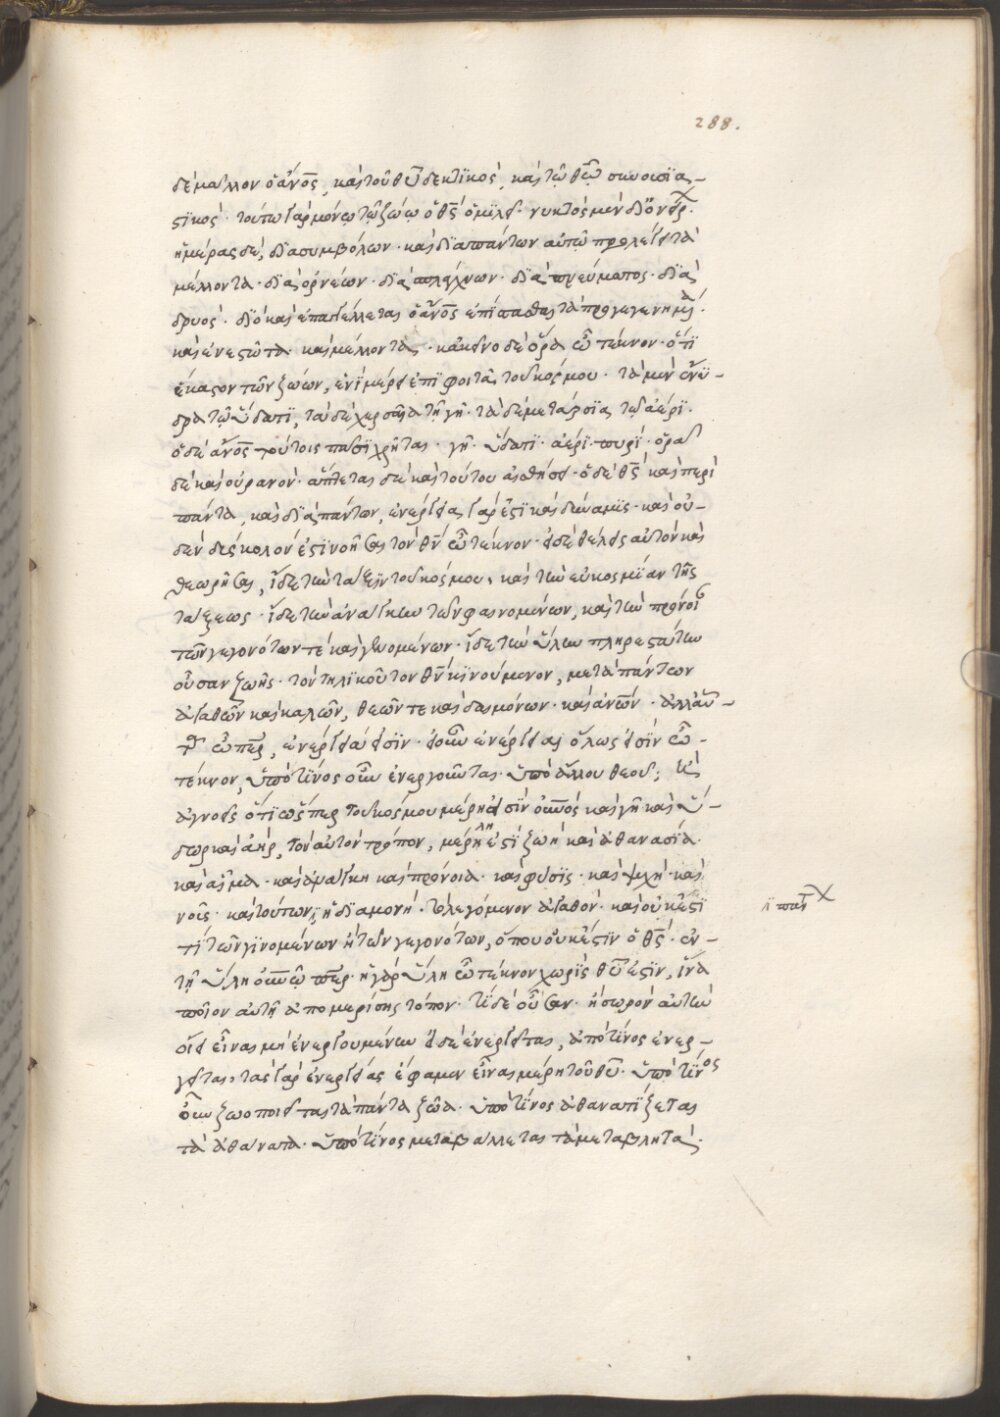 288.
δὲ μᾶλλον ὁ ἄν̅ο̅ς̅, καὶ τοῦ θ̅υ̅ δεκτϊκὸς, καὶ τῷ θ̅ῶ̅ συνουσϊα–
στϊκὸς· τούτω γὰρ μόνω τῷ ζώω ὁ θ̅ς̅ ὁμϊλεῖ· νυκτὸς μὲν δϊ' ὀνείρ·
ἡμέρας δὲ, δϊα συμβόλων· καὶ δϊα πάντων αὐτῷ προλέγει τὰ
μέλλοντα· δϊὰ ὀρνέων· δϊὰ σπλάχνων· δϊὰ πνεύματος· δϊὰ
δρυός· δϊὸ καὶ ἐπαγγέλλεται ὁ ἄν̅ο̅ς̅ ἐπίστασθαι τὰ προγεγενημένα·
καὶ ἐνεστῶτα· καὶ μέλλοντα· κακεῖνο δὲ ὅρα ὦ τέκνον· ὅτϊ
ἕκαστον τῶν ζώων, ἑνὶ μέρει ἐπϊφοιτᾶ τοῦ κόσμου· τὰ μὲν ἔνυ–
δρα τῷ ὕδατϊ, τὰ δὲ χερσαῖα τῇ γῇ· τὰ δὲ μετάρσϊα τῷ ἀέρϊ·
ὁ δὲ ἄν̅ο̅ς̅ τούτοις πᾶσϊ χρῆται· γῇ· ὕδατϊ· ἀέρϊ· πυρί· ὁρᾶ
δὲ καὶ οὐρανόν· ἅπτεται δὲ καὶ τούτου αἰσθήσει· ὁ δὲ θ̅ς̅ καὶ περὶ
πάντα, καὶ δϊὰ πάντων, ἐνέργεια γάρ ἐστϊ καὶ δύναμϊς· καὶ οὐ–
δὲν δύσκολόν ἐστϊ νοῆσαι τὸν θ̅ν̅ ὦ τέκνον· εἰ δὲ θέλεις αὐτὸν καὶ
θεωρῆσαι, ἴδε τὴν τάξϊν τοῦ κόσμου, καὶ τὴν εὐκοσμίαν τῆς
τάξεως· ἴδε τὴν ἀνάγκην τῶν φαινομένων, καὶ τὴν πρόνοιαν
τῶν γεγονότων τὲ καὶ γινομένων· ἴδε τὴν ὕλην πληρεστάτην
οὖσαν ζωῆς· τὸν τηλϊκοῦτον θ̅ν̅ κϊνούμενον, μετὰ πάντων
ἀγαθῶν καὶ καλῶν, θεῶν τε καὶ δαιμόνων· καὶ ἀν̅ω̅ν̅· ἀλλ' αὗ–
ται ὦ π̅ερ̅, ἐνέργειαι εἰσϊν· εἰ οὖν ἐνέργειαι ὅλως εἰσὶν ὦ–
τέκνον, ὑπὸ τίνος οὖν ἐνεργοῦνται· ὑπὸ ἄλλου θεοῦ; ἢ
ἀγνοεῖς ὅτϊ ὥσπερ τοῦ κόσμου μέρη εἰσὶν οὐ̅ν̅ὸς καὶ γῆ καὶ ὕ–
δωρ καὶ ἀὴρ, τὸν αὐτὸν τρόπον, μέλη ἐστὶ ζωὴ καὶ ἀθανασία·
καὶ αἷμα· καὶ ἀνάγκη καὶ πρόνοια· καὶ φύσϊς· καὶ ψυχή· καὶ
νοῦς· καὶ τούτων, ἡ δϊαμονή· τὸ λεγόμενον ἀγαθόν· καὶ οὐκέτϊ
τὶ τῶν γϊνομένων ἢ τῶν γεγονότων, ὅπου οὐκ ἔστϊν ὁ θ̅ς̅· ἐν–
τῇ ὕλη οὖν ὦ π̅ερ̅· ἡ γὰρ ὕλη ὦ τέκνον χωρὶς θ̅υ̅ ἐστϊν, ἵνα
ποῖον αὐτῇ ἀπομερίσης τόπον· τί δὲ οὖσαν· ἢ σωρὸν αὐτὴν
οἴει εἶναι μὴ ἐνεργουμένην εἰ δὲ ἐνεργεῖται, ἀπὸ τίνος ἐνερ–
γεῖται, τὰς γὰρ ἐνεργείας ἔφαμεν εἶναι μέρη τοῦ θ̅υ̅· ὑπὸ τίνος
οὖν ζωοποιεῖται τὰ πάντα ζῶα· ὑπὸ τίνος ἀθανατίζεται
τὰ ἀθάνατα· ὑπὸ τίνος μεταβάλλεται τὰ μεταβλητά·